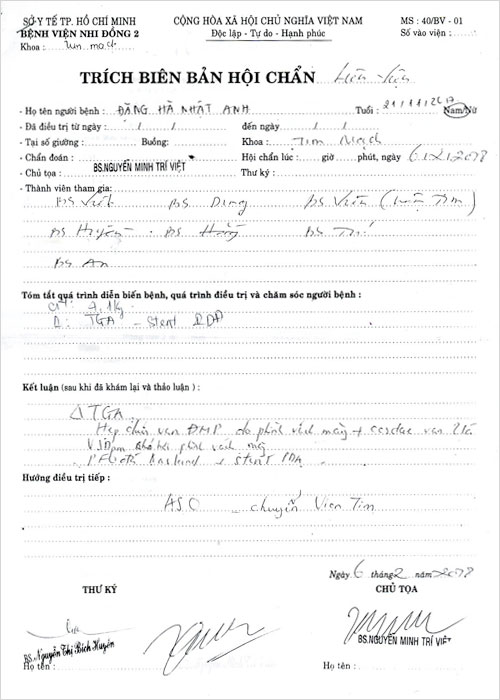 SỞ Y TẾ TP. HỒ CHÍ MINH
BỆNH VIỆN NHI ĐỒNG 2
Khoa : Tim mạch
CỘNG HÒA XÃ HỘI CHỦ NGHĨA VIỆT NAM
Độc lập - Tự do - Hạnh phúc
MS : 40/BV - 01
Số vào viện :
TRÍCH BIÊN BẢN HỘI CHẨN Liên Viện
- Họ tên người bệnh : ĐẶNG HÀ NHẬT ANH Tuổi : 21/11/2017 Nam/Nữ
- Đã điều trị từ ngày : / / đến ngày / /
- Tại số giường : Buồng: Khoa : Tim Mạch
- Chẩn đoán : Hội chẩn lúc : giờ phút, ngày 6/2/2018
- Chủ tọa : BS.NGUYỄN MINH TRÍ VIỆT Thư ký :
- Thành viên tham gia:
BS Việt BS Dung BS Viên (Viện Tim)
BS Huyền BS BS
BS An
Tóm tắt quá trình diễn biến bệnh, quá trình điều trị và chăm sóc người bệnh :
CN: 4,1kg
TGA - Stent PDA
Kết luận (sau khi đã khám lại và thảo luận) :
Δ TGA
Hẹp van ĐMP do phình vách màng + van
phình vách màng
Stent PDA
Hướng điều trị tiếp :
ASO - chuyển Viện Tim
Ngày 6 tháng 2 năm 2018
THƯ KÝ
CHỦ TỌA
BS.Nguyễn Thị Bích Huyền
BS.NGUYỄN MINH TRÍ VIỆT
Họ tên :
Họ tên :